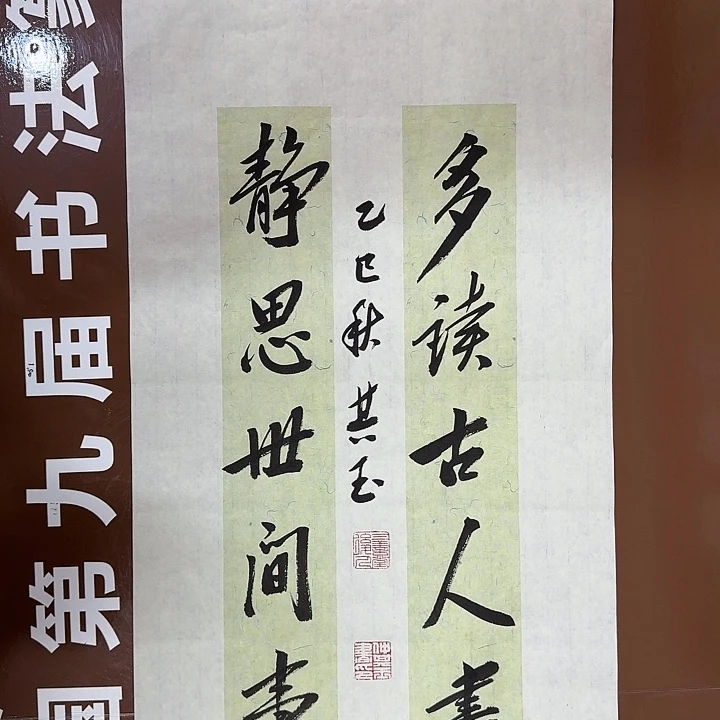 多读古人書
静思世间事
乙巳秋其玉
国第九届书法篆